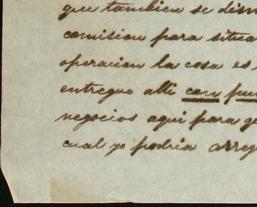 que tambien se dism
comision para situa
operacion la cosa es
entregue alli con pun
negocios aqui para qu
cual yo podria arreg